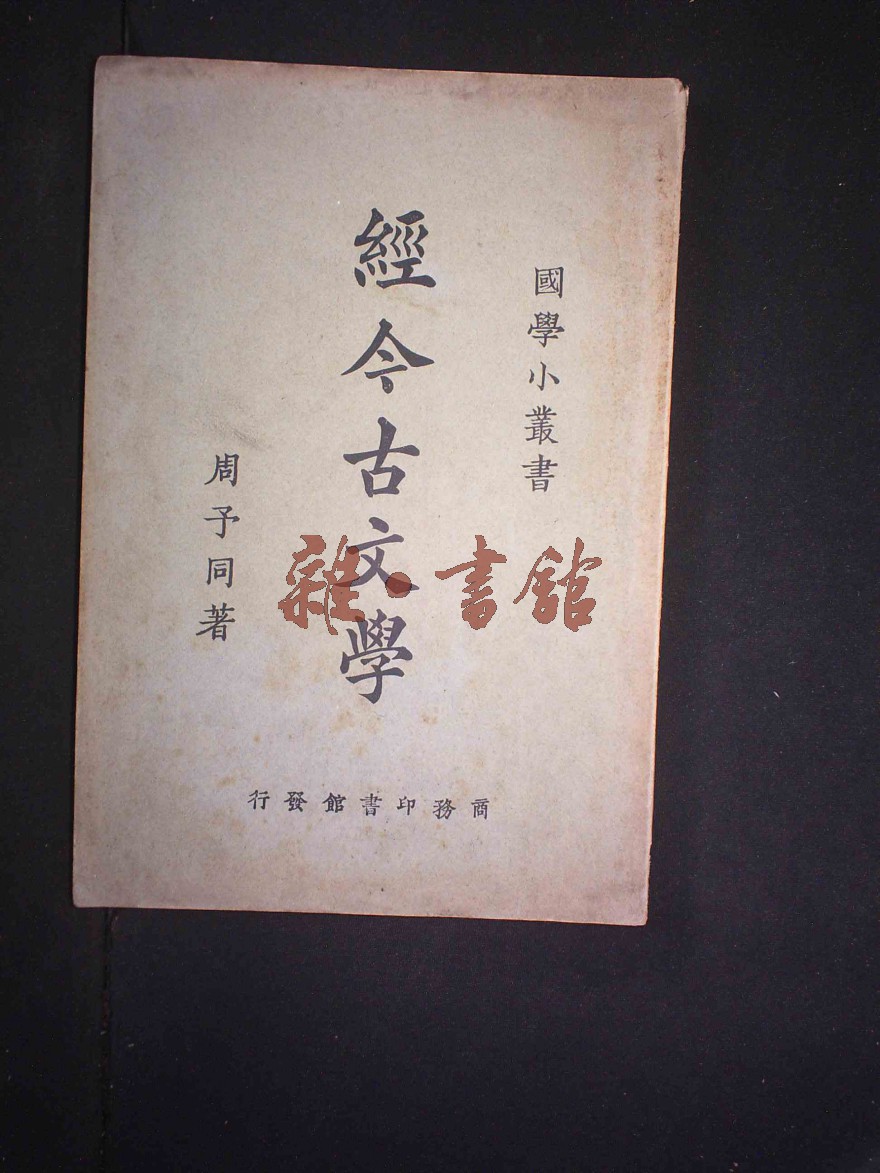 國學小叢書
經今古文學
周予同著
商務印書館發行
雜·書館